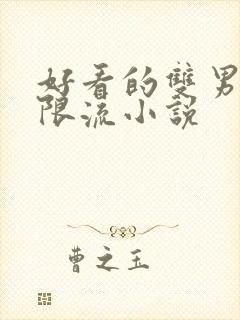 好看的雙男
限流小說
曹之玉